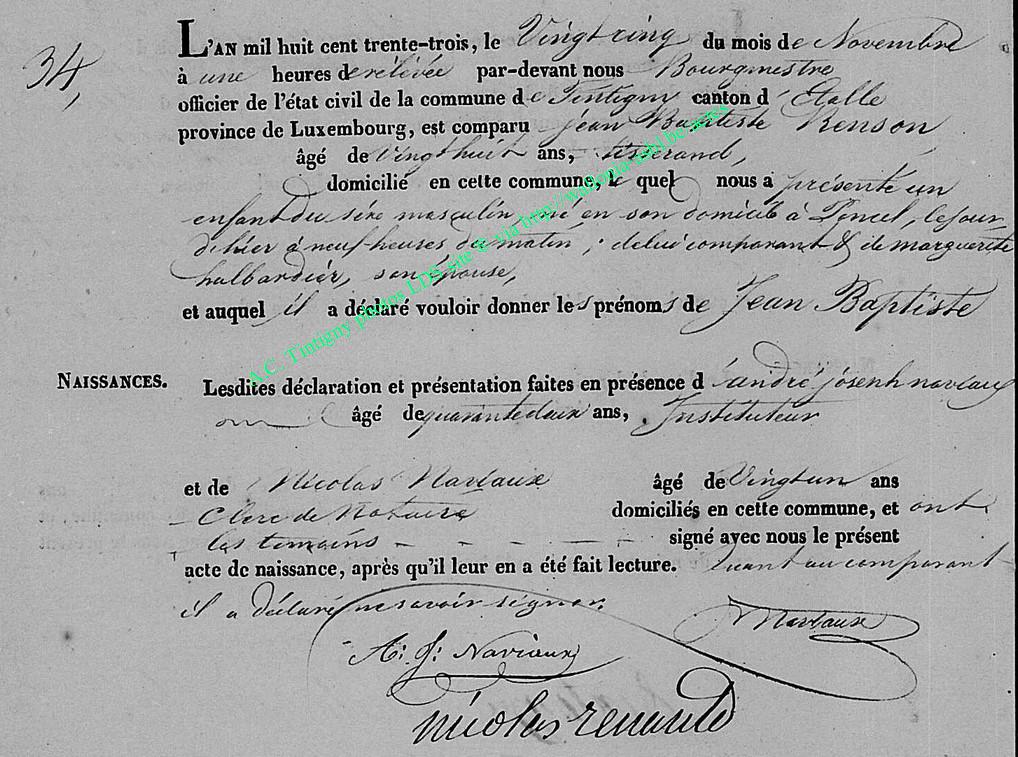 34,
L'AN mil huit cent trente-trois, le Vingt cinq du mois de Novembre
à une heures de rélévée par-devant nous Bourgmestre
officier de l'état civil de la commune de Tintigny canton d'Etalle
province de Luxembourg, est comparu Jean Baptiste Renson,
âgé de Vingt huit ans, tisserand,
domicilié en cette commune, le quel nous a présenté un
enfant du séxe masculin, né en son domicile à Poncel, le jour
d'hier à neuf heures du matin, de lui comparant & de marguerite
halbardier, son épouse,
et auquel il a déclaré vouloir donner les prénoms de Jean Baptiste
NAISSANCES.
Lesdites déclaration et présentation faites en présence d'andré joseph naviaux
âgé de quarante deux ans, Instituteur
et de Nicolas Naviaux âgé de Vingt un ans
Clerc de Notaire domiciliés en cette commune, et ont
les temoins - - - - - signé avec nous le présent
acte de naissance, après qu'il leur en a été fait lecture. quant au comparant
il a déclaré ne savoir signer.
Naviaux
A: J: Naviaux
nicolas renauld
A.C. Tintigny photos LDS site & via http://wallonia-asbl.be/actes